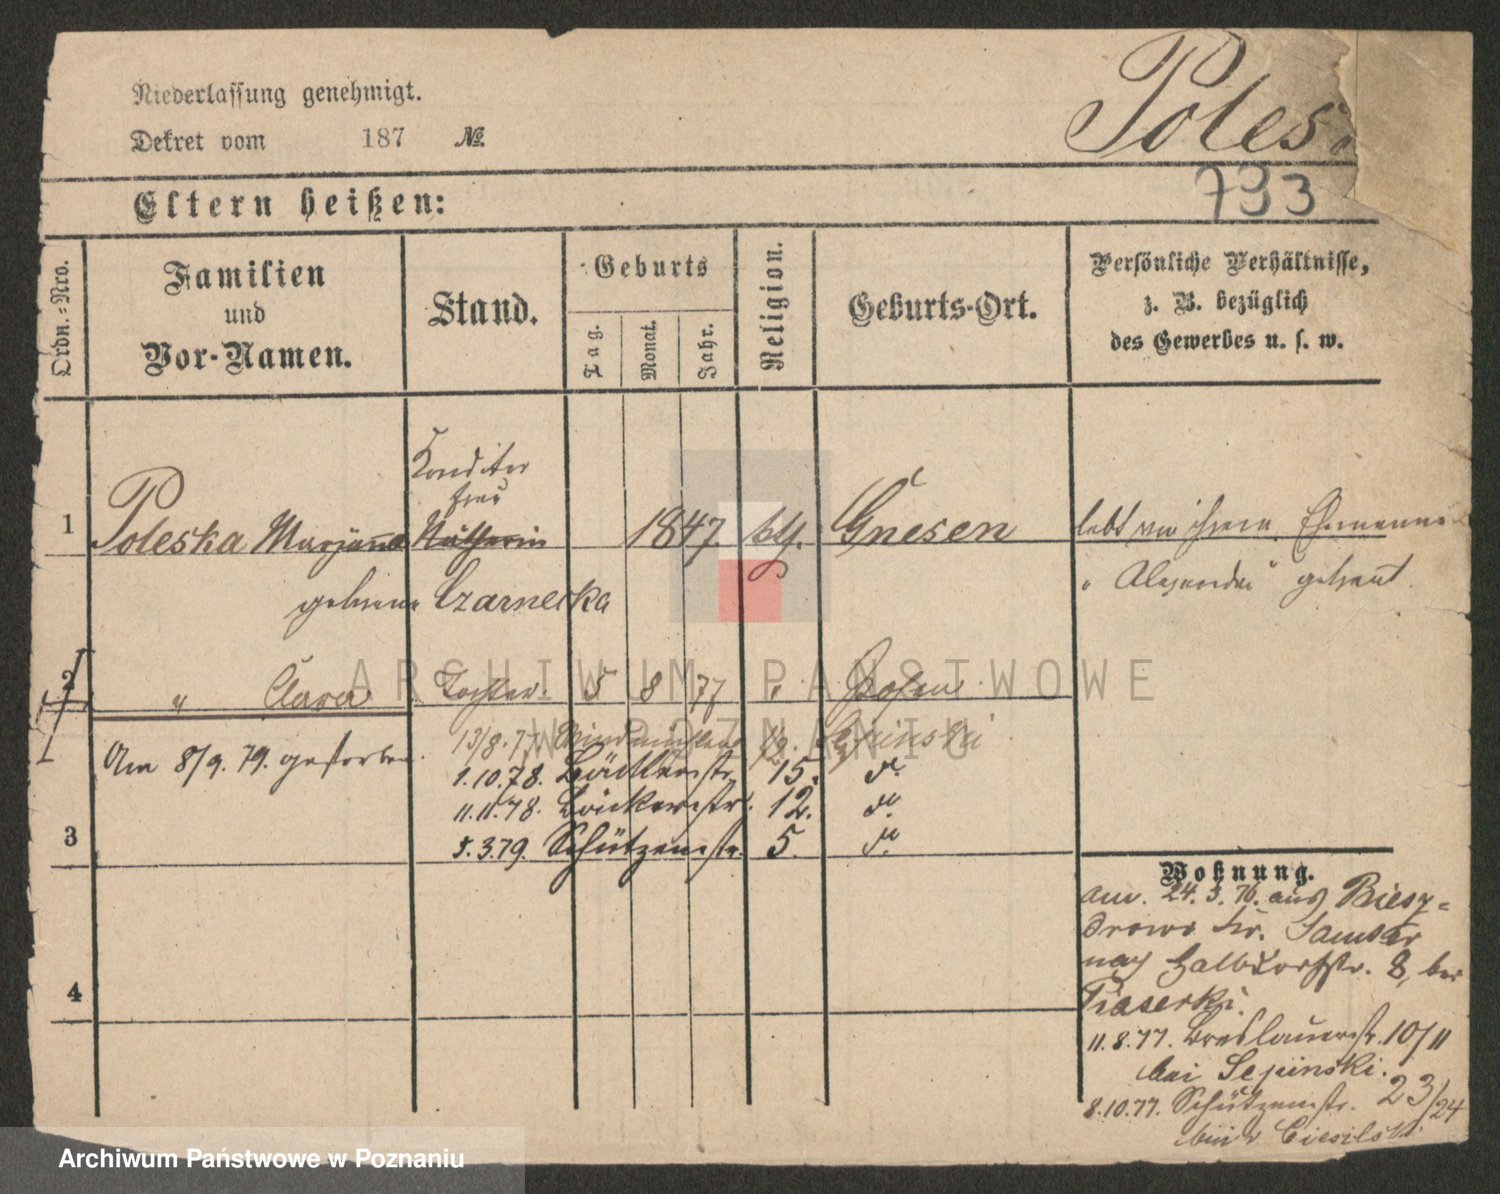 Niederlassung genehmigt.
Dekret vom 187 №
Poles
Eltern heißen:
733
Ordn.-Nro.
Familien
und
Vor-Namen.
Stand.
Geburts
Tag.
Monat.
Jahr.
Religion.
Geburts-Ort.
Persönliche Verhältnisse,
z. B. bezüglich
des Gewerbes u. s. w.
Konditor
frau
1 Poleska Marjanna Nätherin 1847 kth. Gnesen lebt von ihrem Ehemanne
geborene Czarnecka
„Alexander“ getrennt.
2 " Clara Tochter. 5 8 77 " Posen
Am 8/9. 79. gestorben.
13/8. 77.
1.10.78. 15. do.
11.11.78. Bäckerstr. 12. do.
3
5.3.79. Schützenstr. 5. do.
Wohnung.
am. 24. 3. 76. aus Biesz-
drowo Kr. Samter
nach Halbdorfstr. 8, bei
Piaserki.
11.8.77. Breslauerstr. 10/11
bei Sepinski.
8.10.77. Schützenstr. 23/24
bei Ciesilski
4
ARCHIWUM PAŃSTWOWE
W POZNANIU
Archiwum Państwowe w Poznaniu